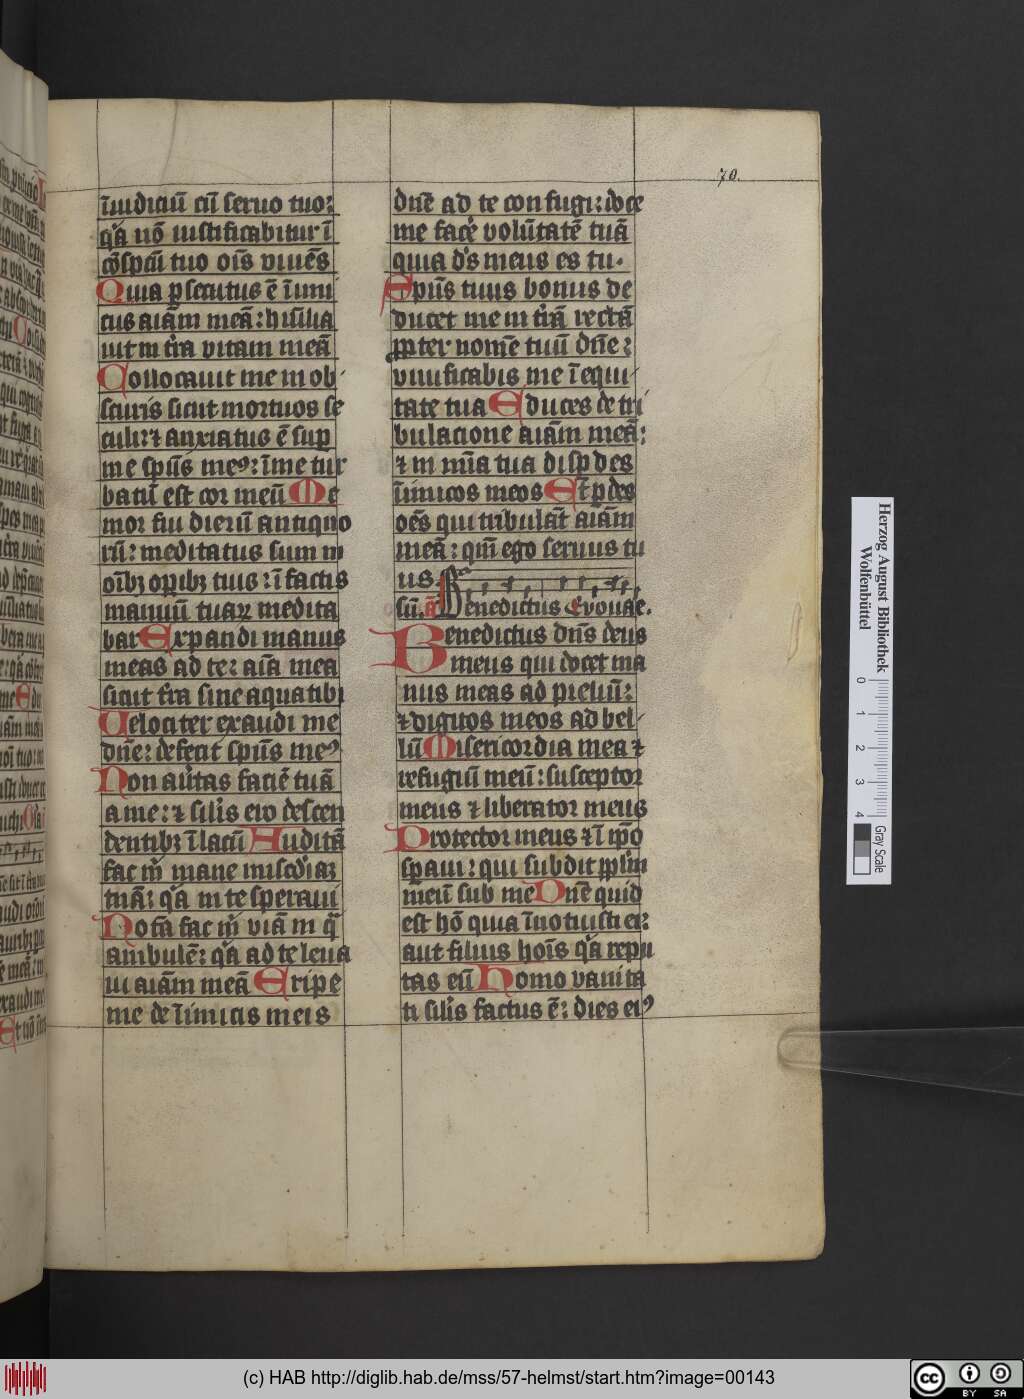 70.
īiudiciū cū seruo tuo:
qͣa nō iustificabitur ī
ꝯspcū tuo oīs viuēs
Quia ꝑsecutus ē īimi
cus aīam meā: humilia
uit in tr̄a vitam meā
Collocauit me in ob
scuris sicut mortuos se
culi: ⁊ anxiatus ē sup̲
me spūs meꝰ: ī me tur
batū est cor meū Me
mor fui dierū antiquo
rū: meditatus sum in
oībꝫ opībꝫ tuis: ī factis
manuū tuaꝝ medita
bar Expandi manus
meas ad te: aīa mea
sicut tr̄a sine aqua tibi
Uelociter exaudi me
dn̄e: defecit spūs meꝰ
Non au̾tas faciē tuā
a me: ⁊ silīs ero descen
dentibꝫ ī lacū Auditā
fac m̄ mane misc̄diaꝫ
tuā: qͣa in te speraui
Nota fac m̄ viā in qͣ
ambulē: qͣa ad te leua
ui aīam meā Eripe
me de īimicis meis
dn̄e ad te confugi: doce
me facē volūtatē tuā
quia ds̄ meus es tu.
Spūs tuus bonus de
ducet me in tr̄a rectā
ꝓpter nomē tuū dn̄e:
viuificabis me ī equi
tate tua Educes de tri
bulacione aīam meā:
⁊ in mīa tua disp̲des
īimicos meos Et p̲des
oēs qui tribulāt aīam
meā: qm̄ ego seruus tu
us.
sū. a Benedictus Evouae.
Benedictus dn̄s deus
meus qui docet ma
nus meas ad preliū:
⁊ digitos meos ad bel
lū Misericordia mea ⁊
refugiū meū: susceptor
meus ⁊ liberator meus
Protector meus ⁊ ī ip̄o
sp̲aui: qui subdit pplm̄
meū sub me Dn̄e quid
est hō quia īnotuisti ei:
aut filius hoīs qͣa repu
tas eū Homo vanita
ti silīs factus ē: dies eiꝰ
Herzog August Bibliothek
Wolfenbüttel
0 1 2 3 4
Gray Scale
(c) HAB http://diglib.hab.de/mss/57-helmst/start.htm?image=00143
cc BY SA